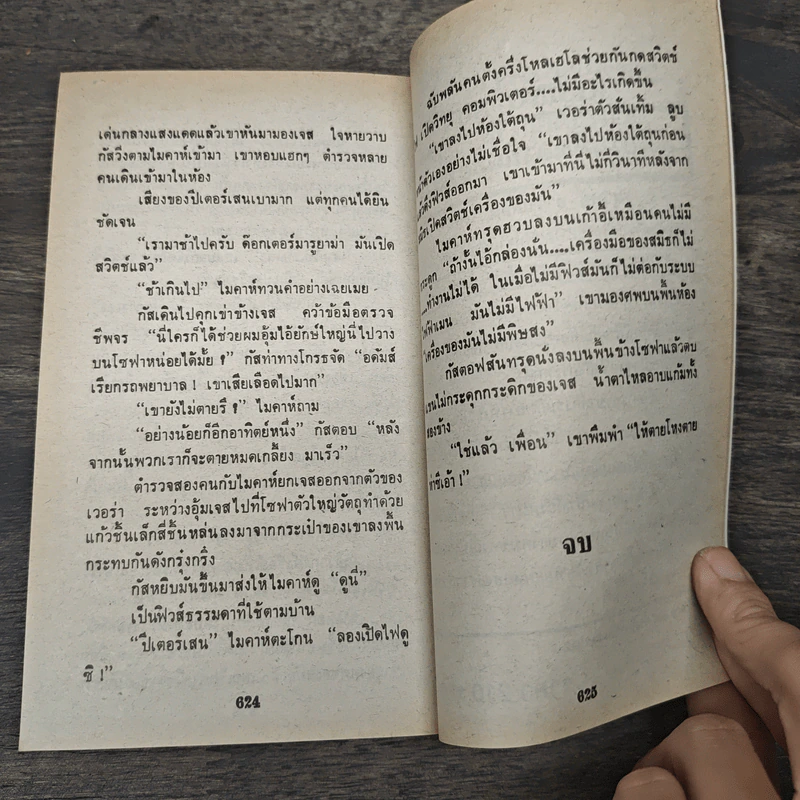 เด่นกลางแสงแดดแล้วเขาหันมามองเจส ใจหายวาบ
กัสวิ่งตามไมคาห์เข้ามา เขาหอบแฮกๆ ตำรวจหลาย
คนเดินเข้ามาในห้อง
เสียงของปีเตอร์เสนเบามาก แต่ทุกคนได้ยิน
ชัดเจน
“เรามาช้าไปครับ ด๊อกเตอร์มารูยาม่า มันเปิด
สวิตช์แล้ว”
“ช้าเกินไป” ไมคาห์ทวนคำอย่างเฉยเมย
กัสเดินไปคุกเข่าข้างเจส คว้าข้อมือตรวจ
ชีพจร “นี่ใครก็ได้ช่วยผมอุ้มไอ้ยักษ์ใหญ่นี่ไปวาง
บนโซฟาหน่อยได้มั้ย ?” กัสท่าทางโกรธจัด “อดัมส์
เรียกรถพยาบาล ! เขาเสียเลือดไปมาก”
“เขายังไม่ตายรึ ?” ไมคาห์ถาม
“อย่างน้อยก็อีกอาทิตย์หนึ่ง” กัสตอบ “หลัง
จากนั้นพวกเราก็จะตายหมดเกลี้ยง มาเร็ว”
ตำรวจสองคนกับไมคาห์ยกเจสออกจากตัวของ
เวอร่า ระหว่างอุ้มเจสไปที่โซฟาตัวใหญ่วัตถุทำด้วย
แก้วชิ้นเล็กสี่ชิ้นหล่นลงมาจากกระเป๋าของเขาลงพื้น
กระทบกันดังกรุ๋งกริ๋ง
กัสหยิบมันขึ้นมาส่งให้ไมคาห์ดู “ดูนี่”
เป็นฟิวส์ธรรมดาที่ใช้ตามบ้าน
“ปีเตอร์เสน” ไมคาห์ตะโกน “ลองเปิดไฟดู
ซิ !”
624
ฉับพลันคนตั้งครึ่งโหลเฮโลช่วยกันกดสวิตช์
เปิดวิทยุ คอมพิวเตอร์....ไม่มีอะไรเกิดขึ้น
“เขาลงไปห้องใต้ถุน” เวอร่าตัวสั่นเทิ้ม ลูบ
ตัวเองอย่างไม่เชื่อใจ “เขาลงไปห้องใต้ถุนก่อน
ดึงฟิวส์ออกมา เขาเข้ามาที่นี่ไม่กี่วินาทีหลังจาก
เปิดสวิตช์เครื่องของมัน”
ไมคาห์ทรุดฮวบลงบนเก้าอี้เหมือนคนไม่มี
กระดูก “ถ้างั้นไอ้กล่องนั่น....เครื่องมือของสมิธก็ไม่
....ทำงานไม่ได้ ในเมื่อไม่มีฟิวส์มันก็ไม่ต่อกับระบบ
ไฟฟ้าเมน มันไม่มีไฟฟ้า” เขามองศพบนพื้นห้อง
“เครื่องของมันไม่มีพิษสง”
กัสตอฟสันทรุดนั่งลงบนพื้นข้างโซฟาแล้วตบ
แขนไม่กระดุกกระดิกของเจส น้ำตาไหลอาบแก้มทั้ง
สองข้าง
“ใช่แล้ว เพื่อน” เขาพึมพำ “ให้ตายโหงตาย
ห่าซีเอ้า !”
จบ
625